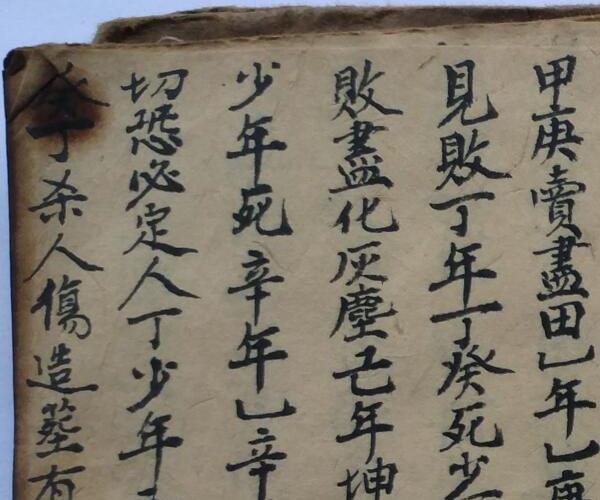 甲庚賣盡田乙年乙庚
見敗丁年丁癸死少
敗盡化灰塵己年坤
少年死辛年乙辛
切恐必定人丁少年
丁杀人傷造葬有